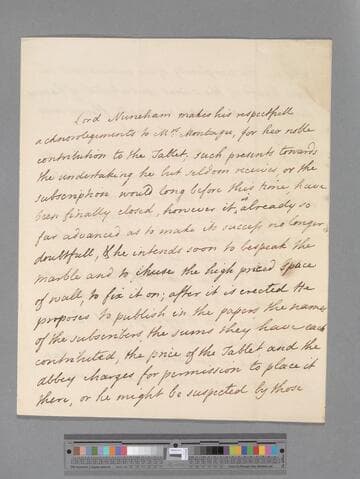 Lord Nuneham makes his respectfull
acknowlegements to Mrs. Montagu, for her noble
contribution to the Tablet, such presents towards
the undertaking he but seldom receives, or the
subscription would long before this time, have
been finally closed, however it is already so
far advanced as to make its success no longer
doubtfull, & he intends soon to bespeak the
marble and to chuse the high priced space
of wall, to fix it on; after it is erected He
proposes to publish in the papers the names
of the subscribers the sums they have each
contributed, the price of the Tablet and the
abbey charges for permission to place it
there, or he might be suspected by those